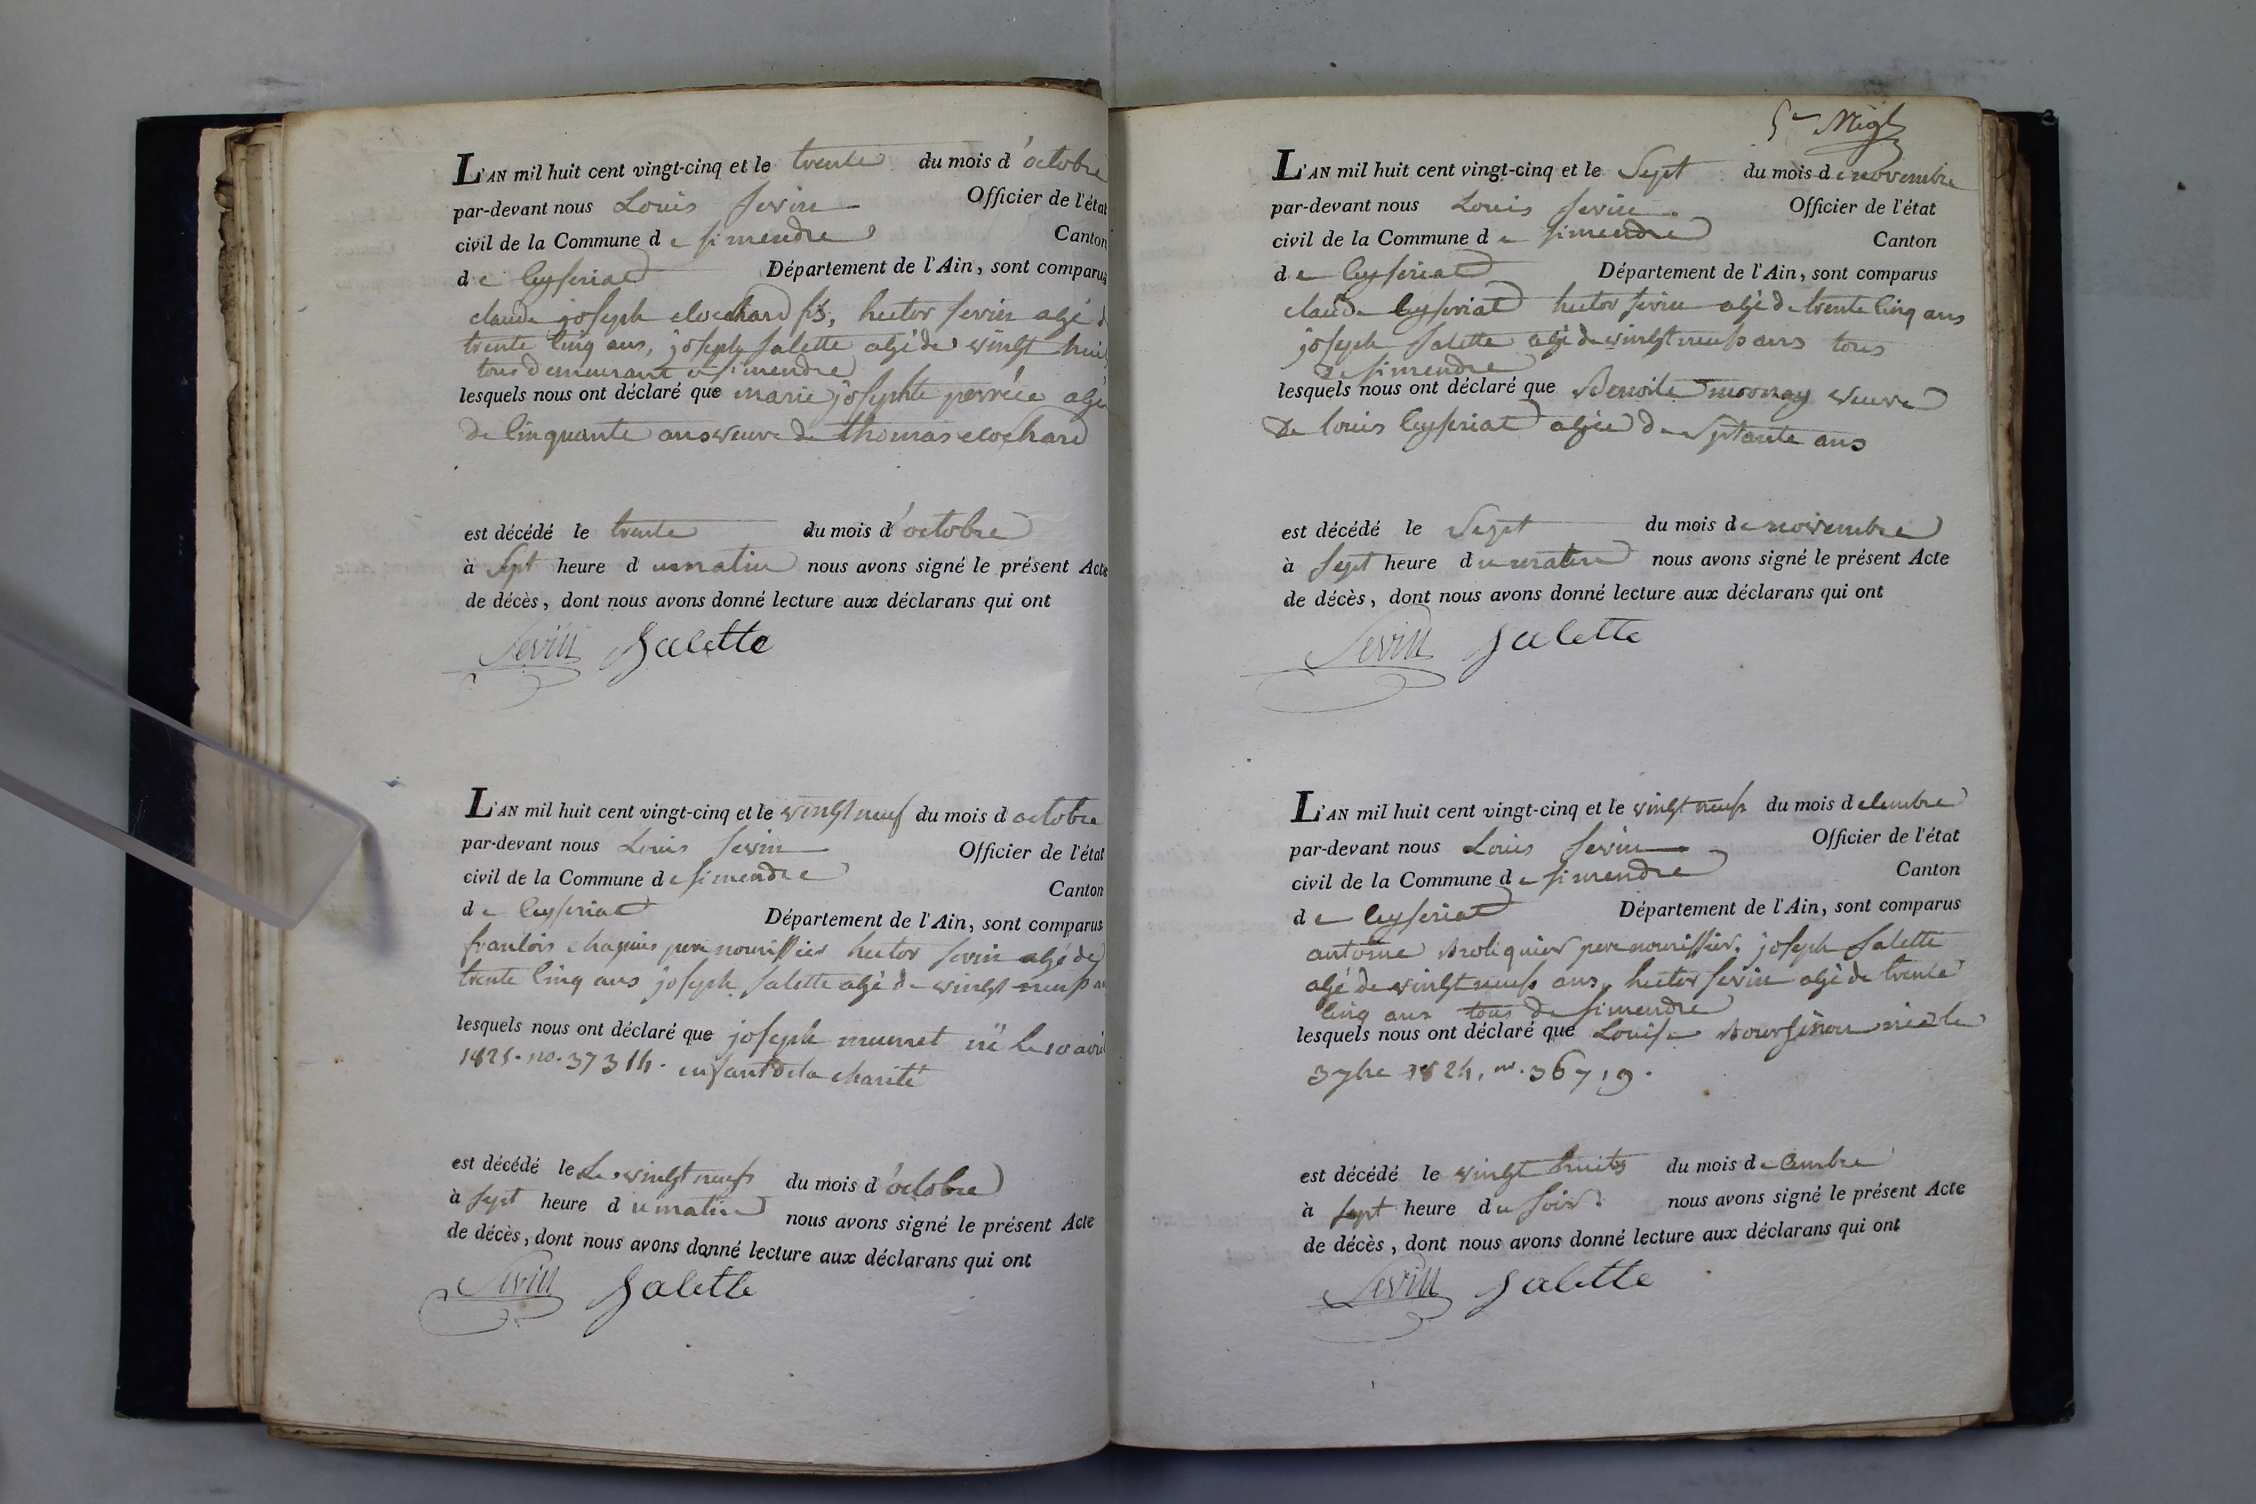 L'AN mil huit cent vingt-cinq et le trente du mois d'octobre
par-devant nous Louis Sevin Officier de l'état
civil de la Commune de Simendre Canton
de Ceyseriat Département de l'Ain, sont comparus
claude joseph clochard fils, hector sevin agé d
trente cinq ans, joseph salette agé de vingt huit
tous demeurant a simendre
lesquels nous ont déclaré que marie josephte perrée agé
de cinquante ans veuve de thomas clochard
est décédé le trente du mois d'octobre
à Sept heure du matin nous avons signé le présent Acte
de décès, dont nous avons donné lecture aux déclarans qui ont
Sevin Salette
L'AN mil huit cent vingt-cinq et le vingt neuf du mois d octobre
par-devant nous Louis Sevin Officier de l'état
civil de la Commune de Simendre Canton
de Ceyseriat Département de l'Ain, sont comparus
francois chapuis pere nourissier hector sevin agé de
trente cinq ans joseph salette agé de vingt neuf an
lesquels nous ont déclaré que joseph murret né le 10 avril
1825. no. 37314. enfant de la charité
est décédé le Le vingt neuf du mois d'octobre
à sept heure du matin nous avons signé le présent Acte
de décès, dont nous avons donné lecture aux déclarans qui ont
Sevin Salette
5e
L'AN mil huit cent vingt-cinq et le Sept du mois de novembre
par-devant nous Louis Sevin Officier de l'état
civil de la Commune de Simendre Canton
de Ceyseriat Département de l'Ain, sont comparus
claude Ceyseriat hector sevin agé de trente cinq ans
joseph salette agé de vingt neuf ans tous
de simendre
lesquels nous ont déclaré que Benoite moonay veuve
De louis Ceyseriat agée de Septante ans
est décédé le Sept du mois de novembre
à Sept heure du matin nous avons signé le présent Acte
de décès, dont nous avons donné lecture aux déclarans qui ont
Sevin Salette
L'AN mil huit cent vingt-cinq et le vingt neuf du mois decembre
par-devant nous Louis Sevin Officier de l'état
civil de la Commune de Simendre Canton
de Ceyseriat Département de l'Ain, sont comparus
antoine Broliquier pere nourissier, joseph salette
agé de vingt neuf ans, hector sevin agé de trente
cinq ans tous de simendre
lesquels nous ont déclaré que Louise née le
3 7bre 1824, no. 36719.
est décédé le vingt huit du mois decembre
à sept heure du soir. nous avons signé le présent Acte
de décès, dont nous avons donné lecture aux déclarans qui ont
Sevin Salette